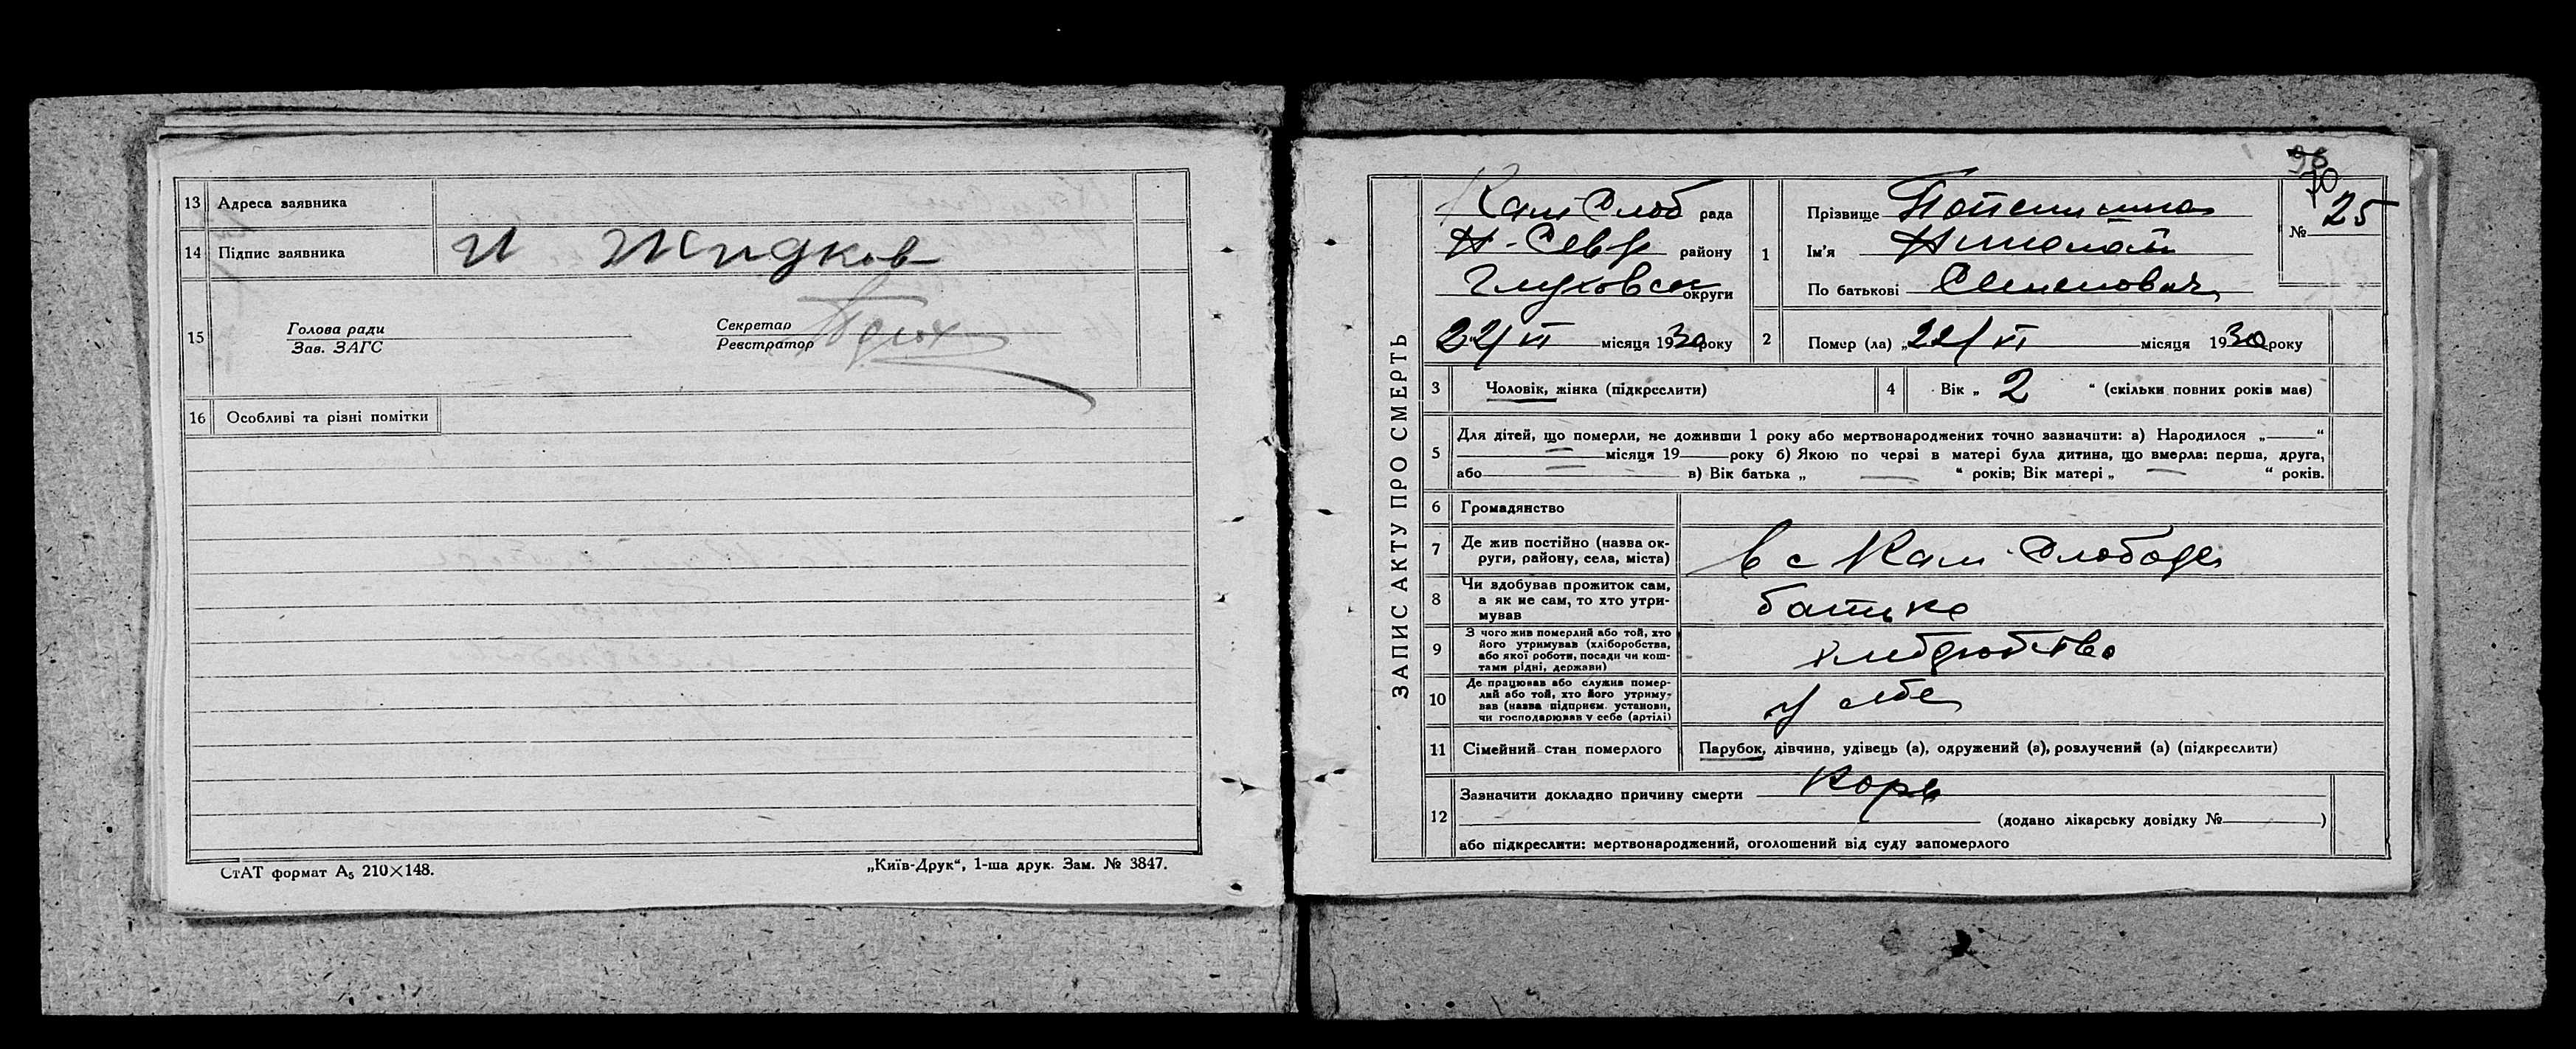 13 Адреса заявника
14 Підпис заявника И Жидков
15 Голова ради
Зав. ЗАГС
Секретар
Реєстратор
16 Особливі та різні помітки
СтАТ формат А₅ 210×148.
„Київ-Друк“, 1-ша друк. Зам. № 3847.
96
70
ЗАПИС АКТУ ПРО СМЕРТЬ
Кам Слоб рада
Н-Севр району
Глуховск округи
22/VI місяця 1930 року
1 Прізвище
Ім'я Николай
По батькові Семенович
№ 25
2 Помер (ла) „22/VI місяця 1930 року
3 Чоловік, жінка (підкреслити)
4 Вік „ 2 “ (скільки повних років має)
5 Для дітей, що померли, не доживши 1 року або мертвонароджених точно зазначити: а) Народилося „ — “
місяця 19 року б) Якою по черзі в матері була дитина, що вмерла: перша, друга,
або в) Вік батька „ — “ років; Вік матері „ — “ років.
6 Громадянство
7 Де жив постійно (назва ок-
руги, району, села, міста)
в с Кам-Слободе
8 Чи здобував прожиток сам,
а як не сам, то хто утри-
мував
батько
9 З чого жив померлий або той, хто
його утримував (хліборобства,
або якої роботи, посади чи кош-
тами рідні, держави)
10 Де працював або служив помер-
лий або той, хто його утриму-
вав (назва підприєм. установи,
чи господарював у себе (артілі)
у себе
11 Сімейний стан померлого
Парубок, дівчина, удівець (а), одружений (а), розлучений (а) (підкреслити)
12 Зазначити докладно причину смерти Корь
(додано лікарську довідку № )
або підкреслити: мертвонароджений, оголошений від суду запомерлого